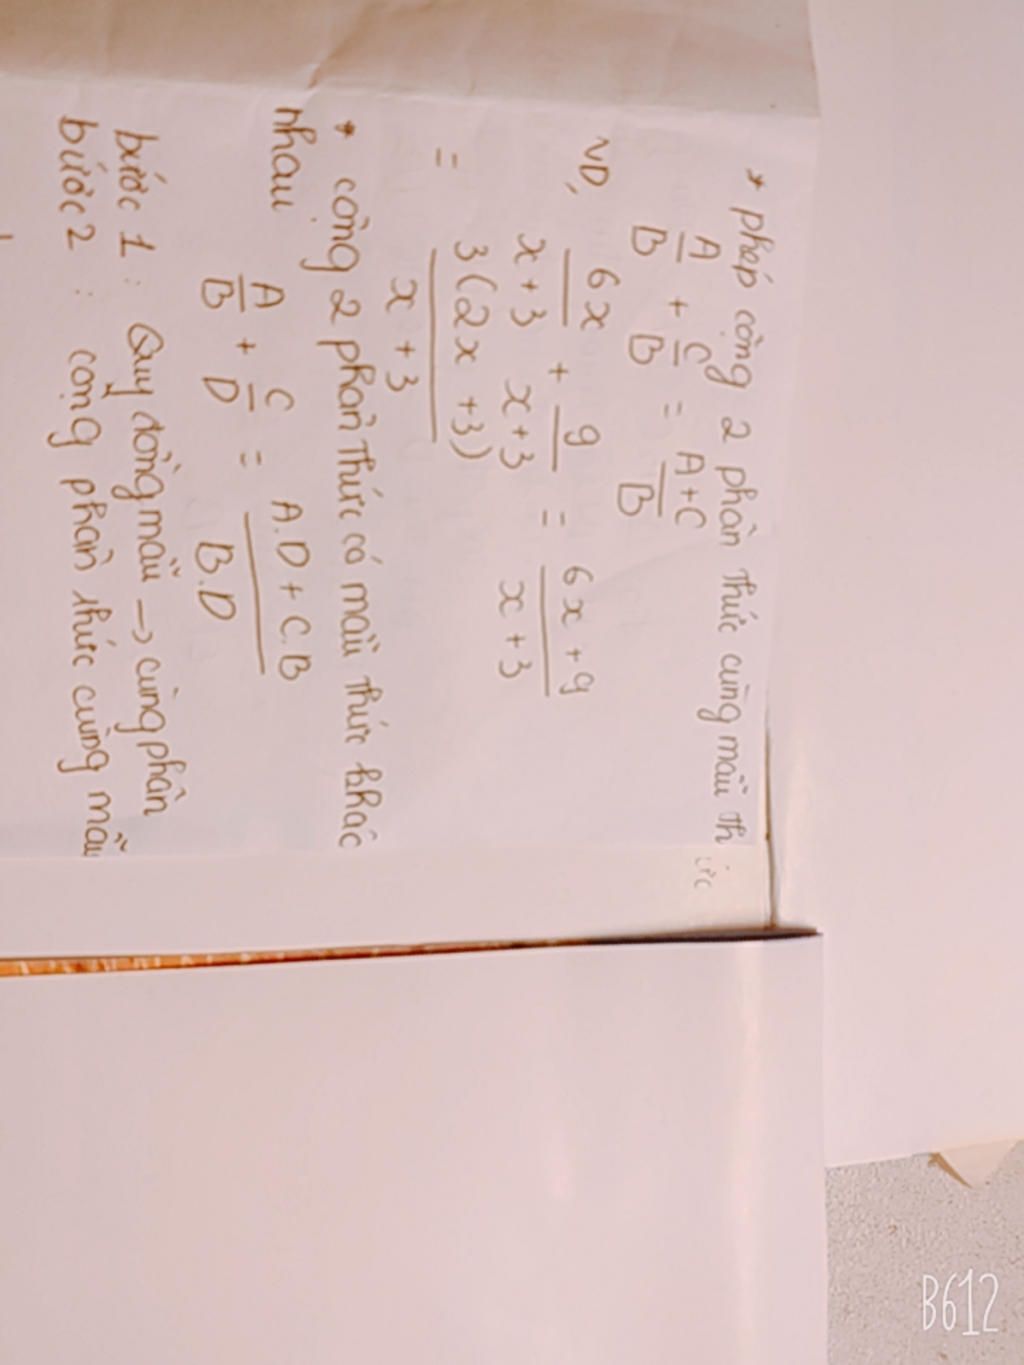 * phép cộng 2 phân thức cùng mẫu thức
A/B + C/B = A+C/B
VD, 6x/x+3 + 9/x+3 = 6x+9/x+3
= 3(2x+3)/x+3
* cộng 2 phân thức có mẫu thức khác
nhau
A/B + C/D = A.D+C.B/B.D
bước 1 : Quy đồng mẫu -> cùng phân
bước 2 : cộng phân thức cùng mẫu
B612